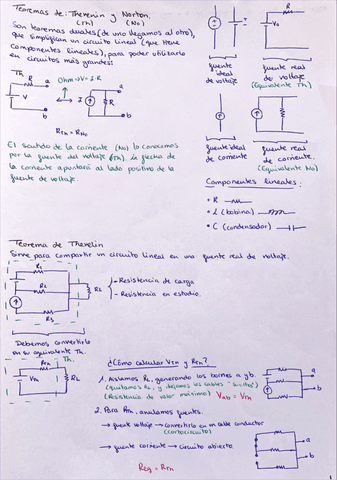 Teoremas de: Thevenin y Norton.
(Th) (No)
Son teoremas duales (de uno llegamos al otro),
que simplifican un circuito lineal (que tiene
componentes lineales), para poder utilizarlo
en circuitos más grandes:
Th
R
a
V
b
Ohm → V = I·R
I
R
a
b
RTh = RNo
El sentido de la corriente (No) lo conocemos
por la fuente del voltaje (Th). La flecha de
la corriente apuntará al lado positivo de la
fuente de voltaje.
fuente
ideal
de voltaje
R
Vo
fuente real
de voltaje
(Equivalente Th)
fuente ideal
de corriente
fuente real
de corriente.
(Equivalente No)
Componentes lineales:
• R
• L (bobina)
• C (condensador)
Teorema de Thevelin
Sirve para compartir un circuito lineal en una fuente real de voltaje.
R1
R2
RL
- Resistencia de carga
- Resistencia en estudio.
Debemos convertirlo
en su equivalente Th.
RTh
VTh
RL
¿Cómo calcular VTh y RTh?
1. Aislamos RL, generando los bornes a y b.
(quitamos RL, y dejamos los cables "sueltos")
(Resistencia de valor máximo) Vab = VTh
a
b
2. Para RTh, anulamos fuentes.
→ fuente voltaje → convertirla en un cable conductor
(cortocircuito)
→ fuente corriente → circuito abierto
a
b
Req = RTh
1